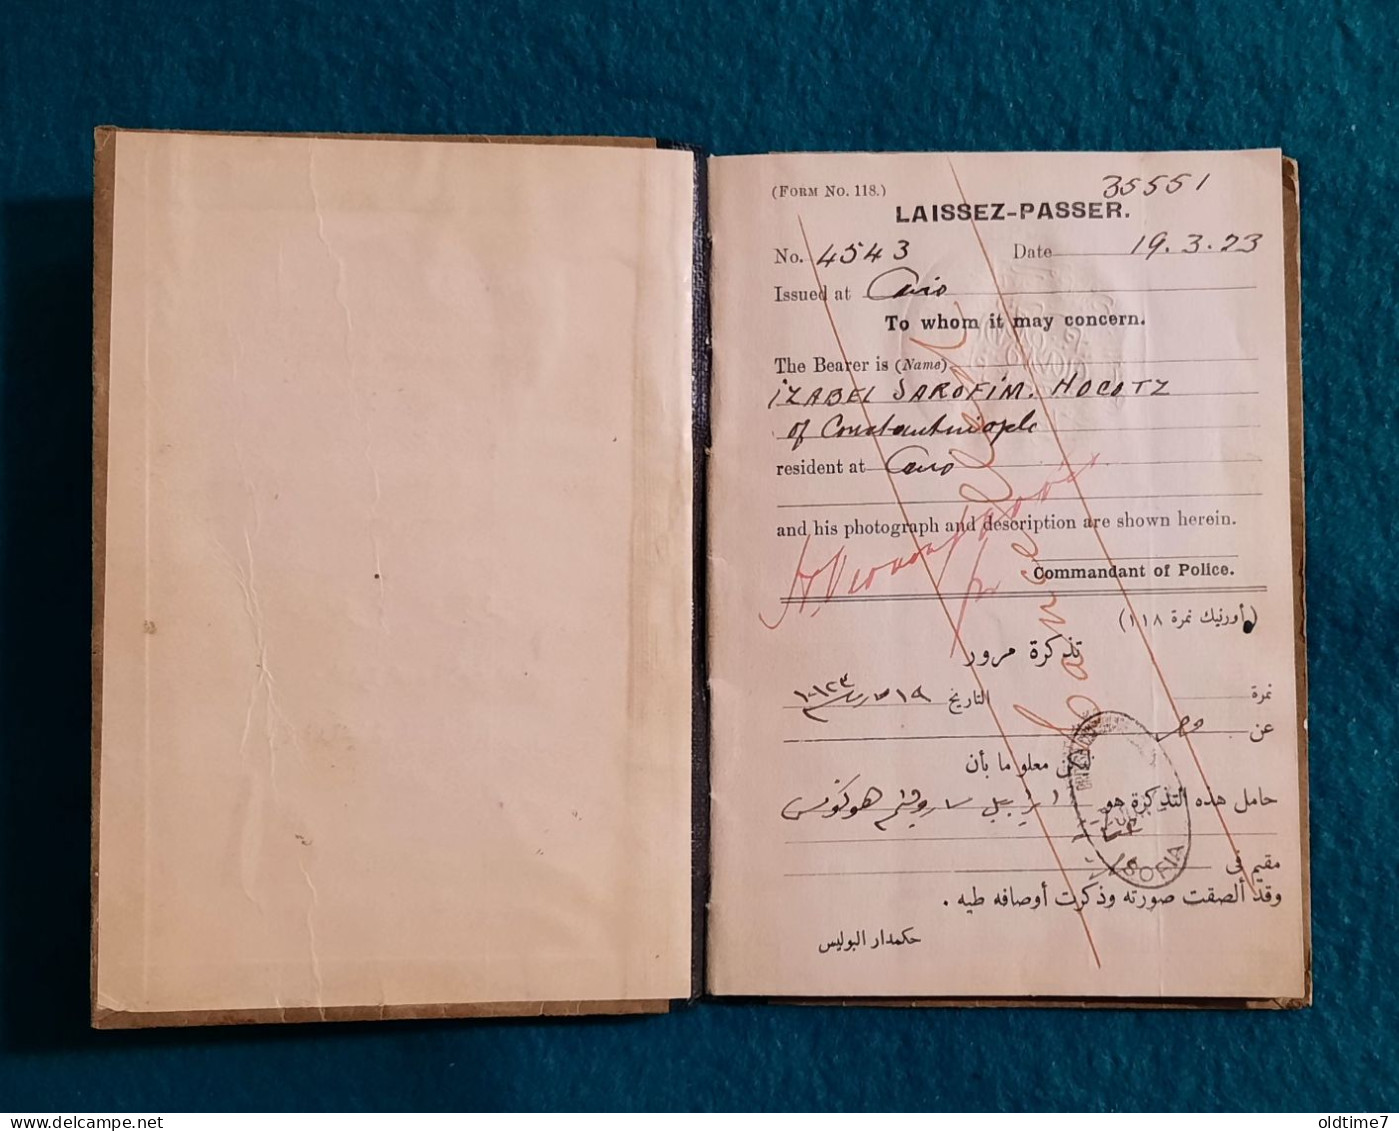 (FORM NO. 118.)
35551
LAISSEZ-PASSER.
No. 4543 Date 19.3.23
Issued at Cairo
To whom it may concern.
The Bearer is (Name)
IZABEL SAROFIM. HOCOTZ
of Constantinople
resident at Cairo
and his photograph and description are shown herein.
Commandant of Police.
Cancelled
(أورنيك نمرة ١١٨)
تذكرة مرور
نمرة التاريخ ١٩ مارس
عن مصر
معلوما بأن
حامل هذه التذكرة هو ايزابيل ساروفيم هوكوتس
مقيم فى
وقد ألصقت صورته وذكرت أوصافه طيه .
حكمدار البوليس
SOFIA
www.delcampe.net
oldtime7